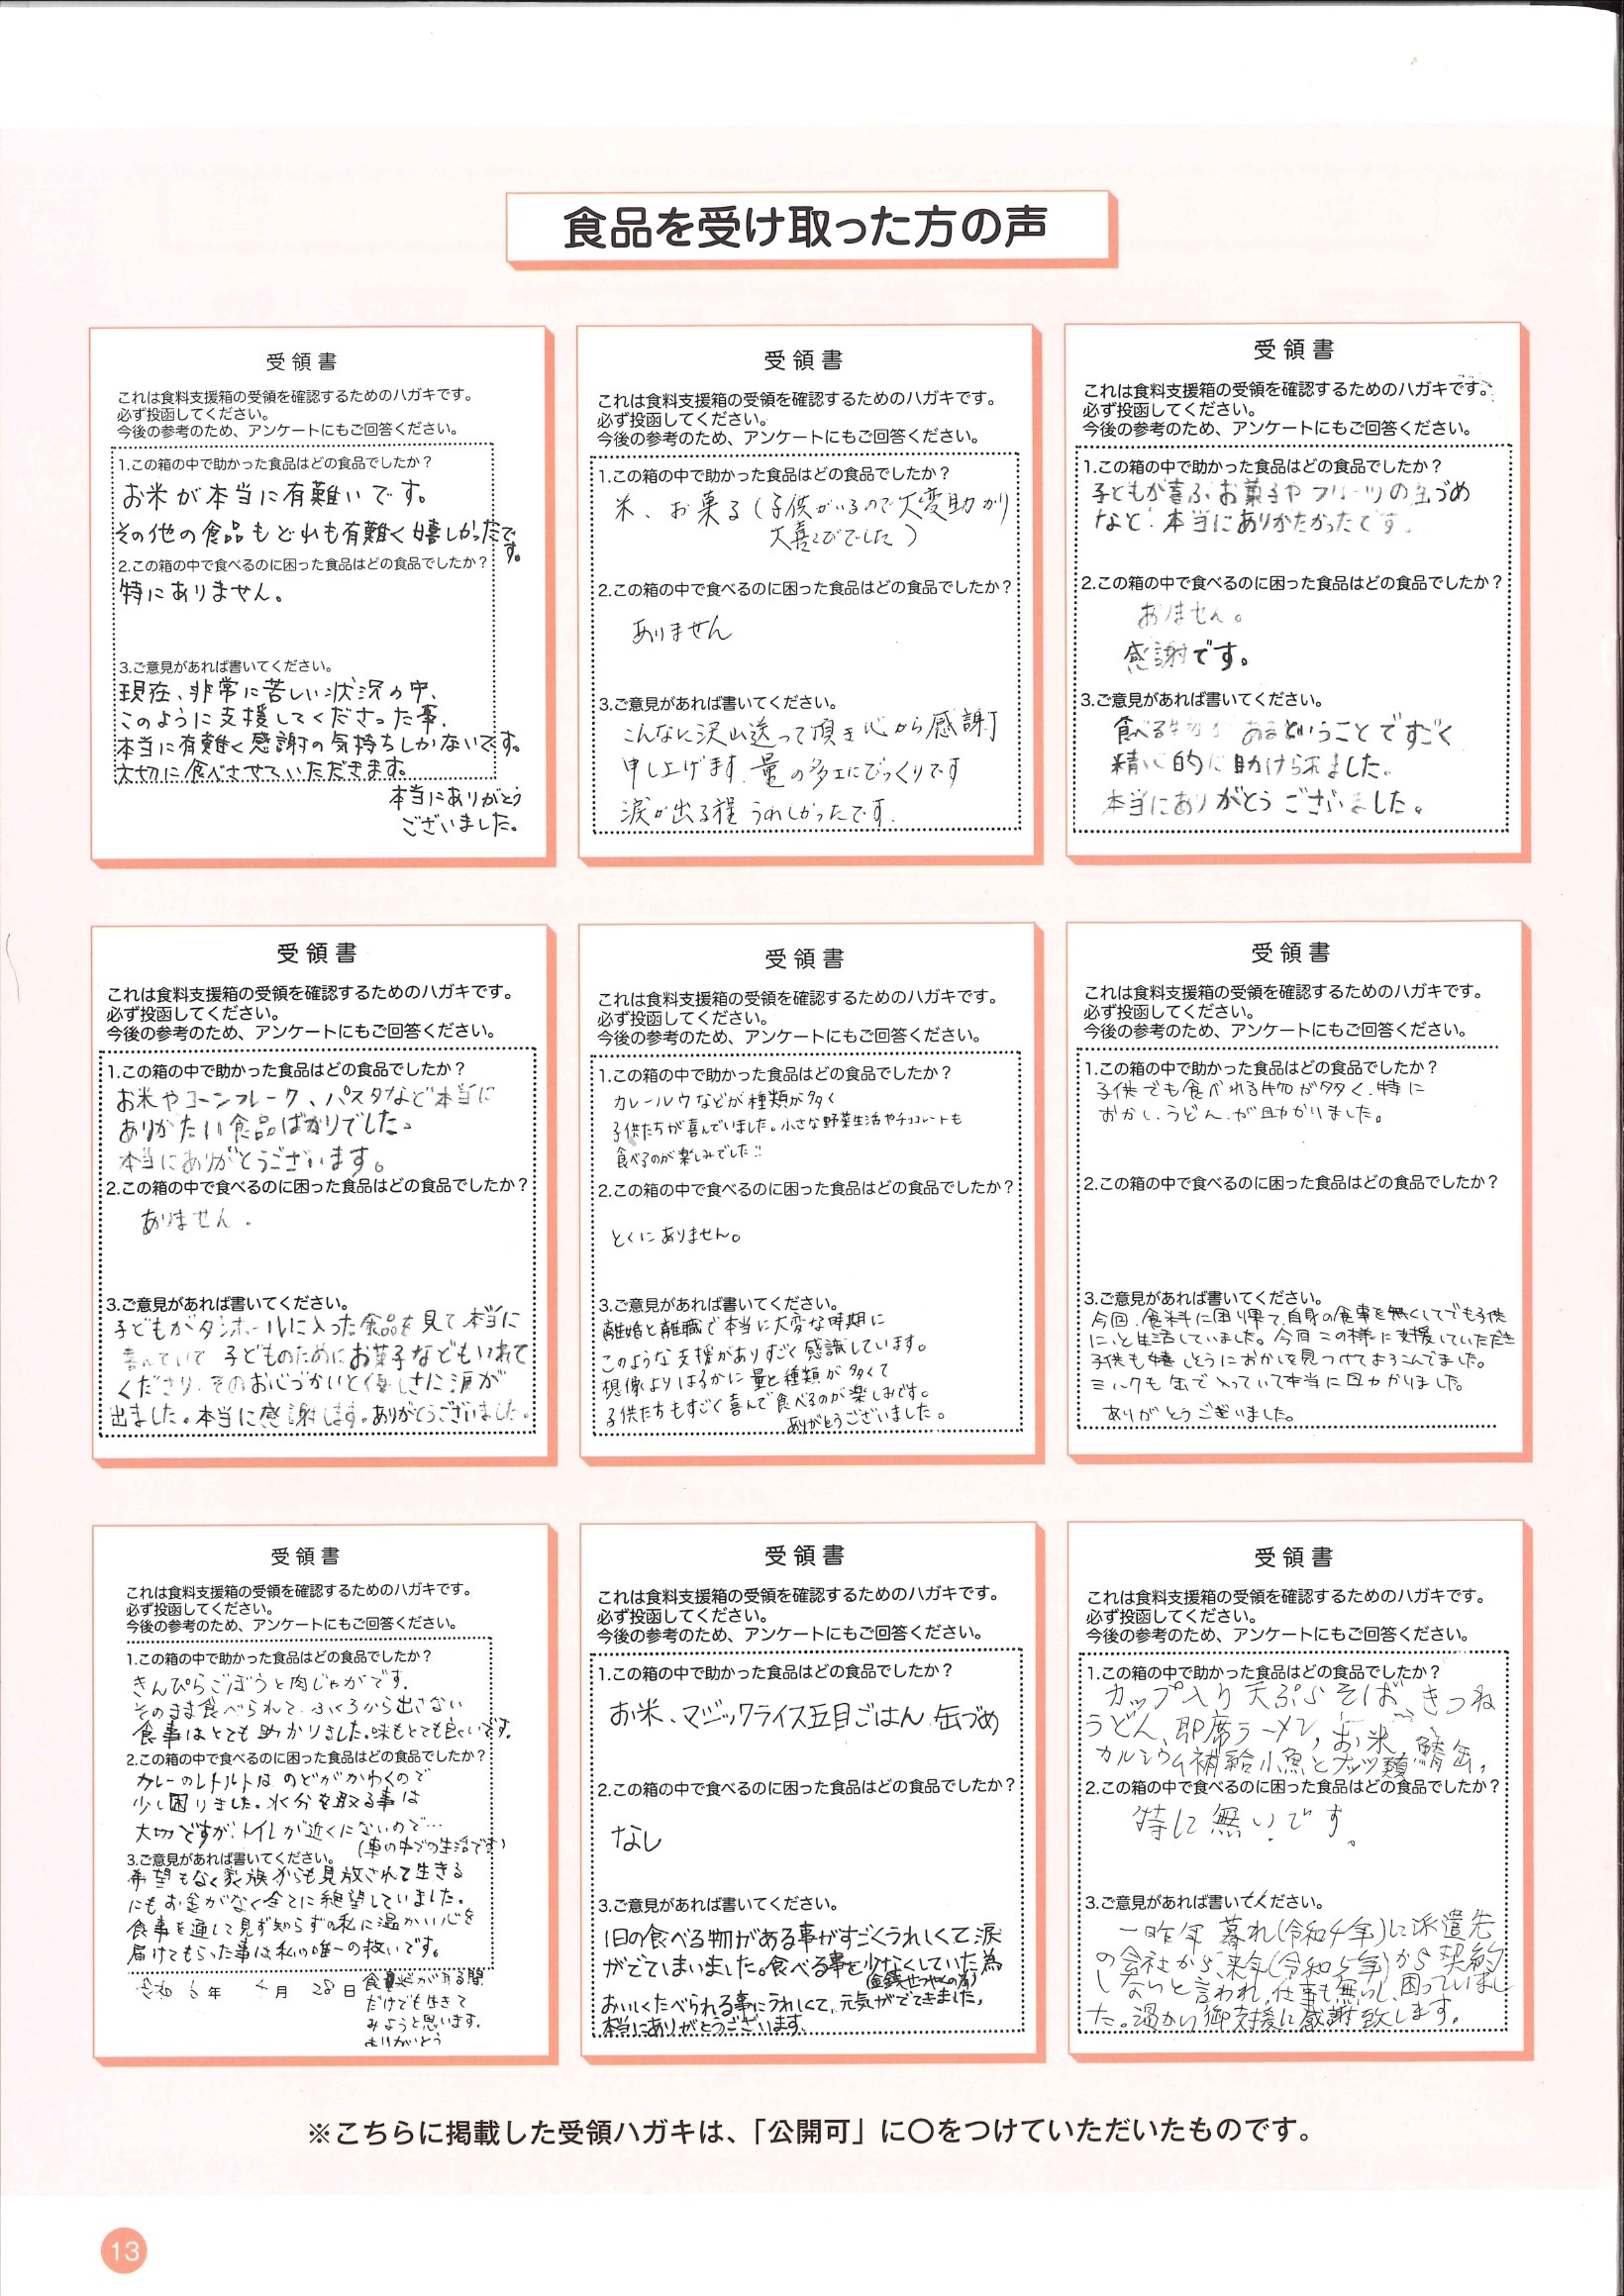 食品を受け取った方の声
受領書
これは食料支援箱の受領を確認するためのハガキです。
必ず投函してください。
今後の参考のため、アンケートにもご回答ください。
1.この箱の中で助かった食品はどの食品でしたか？
お米が本当に有難いです。
その他の食品もどれも有難く嬉しかったです。
2.この箱の中で食べるのに困った食品はどの食品でしたか？
特にありません。
3.ご意見があれば書いてください。
現在、非常に苦しい状況の中、
このように支援してくださった事、
本当に有難く感謝の気持ちしかないです。
大切に食べさせていただきます。
本当にありがとう
ございました。
受領書
これは食料支援箱の受領を確認するためのハガキです。
必ず投函してください。
今後の参考のため、アンケートにもご回答ください。
1.この箱の中で助かった食品はどの食品でしたか？
米、お菓子(子供がいるので大変助かり
大喜びでした)
2.この箱の中で食べるのに困った食品はどの食品でしたか？
ありません
3.ご意見があれば書いてください。
こんなに沢山送って頂き心から感謝
申し上げます。量の多さにびっくりです
涙が出る程うれしかったです。
受領書
これは食料支援箱の受領を確認するためのハガキです。
必ず投函してください。
今後の参考のため、アンケートにもご回答ください。
1.この箱の中で助かった食品はどの食品でしたか？
子どもが喜ぶお菓子やフルーツの缶づめ
など、本当にありがたかったです。
2.この箱の中で食べるのに困った食品はどの食品でしたか？
ありません。
感謝です。
3.ご意見があれば書いてください。
食べる物があるということですごく
精心的に助けられました。
本当にありがとうございました。
受領書
これは食料支援箱の受領を確認するためのハガキです。
必ず投函してください。
今後の参考のため、アンケートにもご回答ください。
1.この箱の中で助かった食品はどの食品でしたか？
お米やコーンフレーク、パスタなど本当に
ありがたい食品ばかりでした。
本当にありがとうございます。
2.この箱の中で食べるのに困った食品はどの食品でしたか？
ありません。
3.ご意見があれば書いてください。
子どもがダンボールに入った食品を見て本当に
喜んでいて 子どものためにお菓子などもいれて
くださり、そのお心づかいと優しさに涙が
出ました。本当に感謝します。ありがとうございました。
受領書
これは食料支援箱の受領を確認するためのハガキです。
必ず投函してください。
今後の参考のため、アンケートにもご回答ください。
1.この箱の中で助かった食品はどの食品でしたか？
カレールウなどが種類が多く
子供たちが喜んでいました。小さな野菜生活やチョコレートも
食べるのが楽しみでした!!
2.この箱の中で食べるのに困った食品はどの食品でしたか？
とくにありません。
3.ご意見があれば書いてください。
離婚と離職で本当に大変な時期に
このような支援がありすごく感謝しています。
想像よりはるかに量と種類が多くて
子供たちもすごく喜んで食べるのが楽しみです。
ありがとうございました。
受領書
これは食料支援箱の受領を確認するためのハガキです。
必ず投函してください。
今後の参考のため、アンケートにもご回答ください。
1.この箱の中で助かった食品はどの食品でしたか？
子供でも食べれる物が多く、特に
おかし、うどん、が助かりました。
2.この箱の中で食べるのに困った食品はどの食品でしたか？
3.ご意見があれば書いてください。
今回、食料に困り果て、自身の食事を無くしてでも子供
に、と生活していました。今回この様に支援していただき
子供も嬉しそうにおかしを見つけてよろこんでました。
ミルクも缶で入っていて本当に助かりました。
ありがとうございました。
受領書
これは食料支援箱の受領を確認するためのハガキです。
必ず投函してください。
今後の参考のため、アンケートにもご回答ください。
1.この箱の中で助かった食品はどの食品でしたか？
きんぴらごぼうと肉じゃがです。
そのまま食べられて、ふくろから出さない
食事はとても助かりました。味もとても良いです。
2.この箱の中で食べるのに困った食品はどの食品でしたか？
カレーのレトルトは のどがかわくので
少し困りました。水分を取る事は
大切ですが、トイレが近くにないので…
(車の中での生活です)
3.ご意見があれば書いてください。
希望もなく家族からも見放されて生きる
にもお金がなく全てに絶望していました。
食事を通して見ず知らずの私に温かい心を
届けてもらった事は私の唯一の救いです。
令和 6年 月 28日 食料がある間
だけでも生きて
みようと思います。
ありがとう
受領書
これは食料支援箱の受領を確認するためのハガキです。
必ず投函してください。
今後の参考のため、アンケートにもご回答ください。
1.この箱の中で助かった食品はどの食品でしたか？
お米、マジックライス五目ごはん、缶づめ
2.この箱の中で食べるのに困った食品はどの食品でしたか？
なし
3.ご意見があれば書いてください。
1日の食べる物がある事がすごくうれしくて涙
がでてしまいました。食べる事を少なくしていた為
(金銭せつやくの為)
おいしくたべられる事にうれしくて、元気がでてきました。
本当にありがとうございます。
受領書
これは食料支援箱の受領を確認するためのハガキです。
必ず投函してください。
今後の参考のため、アンケートにもご回答ください。
1.この箱の中で助かった食品はどの食品でしたか？
カップ入り天ぷらそば、きつね
うどん、即席ラーメン、お米、
カルシウム補給小魚とナッツ類、鯖缶。
2.この箱の中で食べるのに困った食品はどの食品でしたか？
特に無いです。
3.ご意見があれば書いてください。
一昨年暮れ(令和4年)に派遣先
の会社から、来年(令和5年)から契約
しないと言われ、仕事も無いし、困っていまし
た。温かい御支援に感謝致します。
※こちらに掲載した受領ハガキは、「公開可」に〇をつけていただいたものです。
13